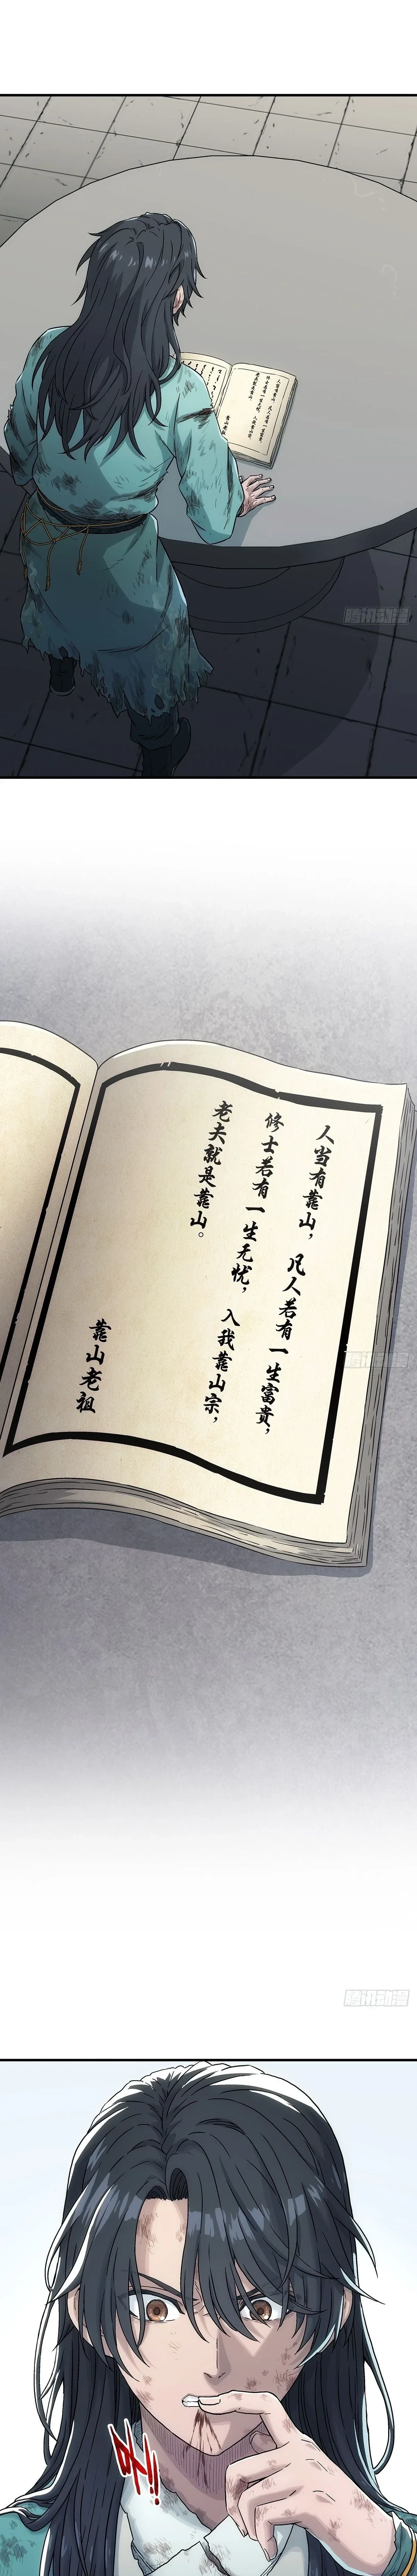 腾讯动漫
人当有靠山，凡人若有一生富贵，
修士若有一生无忧，入我靠山宗，
老夫就是靠山。
靠山老祖
腾讯动漫
腾讯动漫